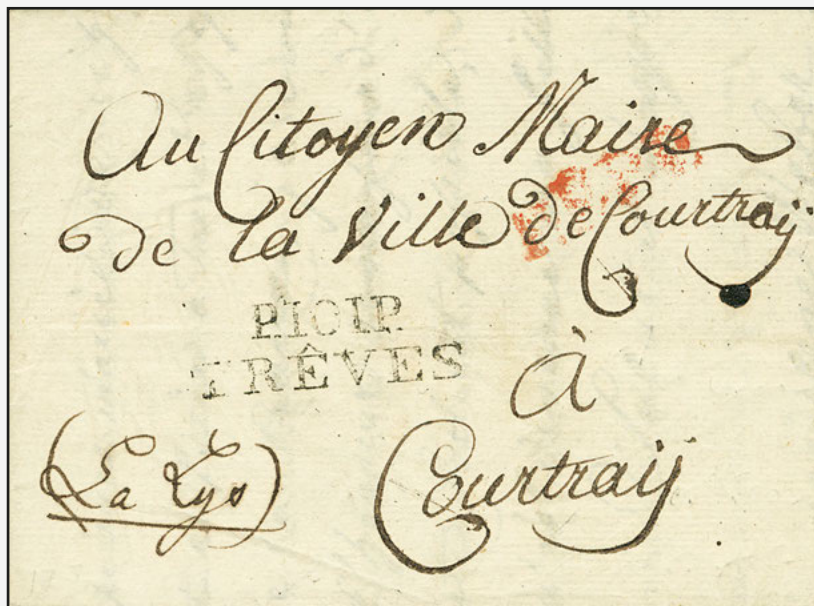 Au Citoyen Maire
de la Ville de Courtraij
P.101.P.
TRÊVES
à
(La Lys)
Courtraij